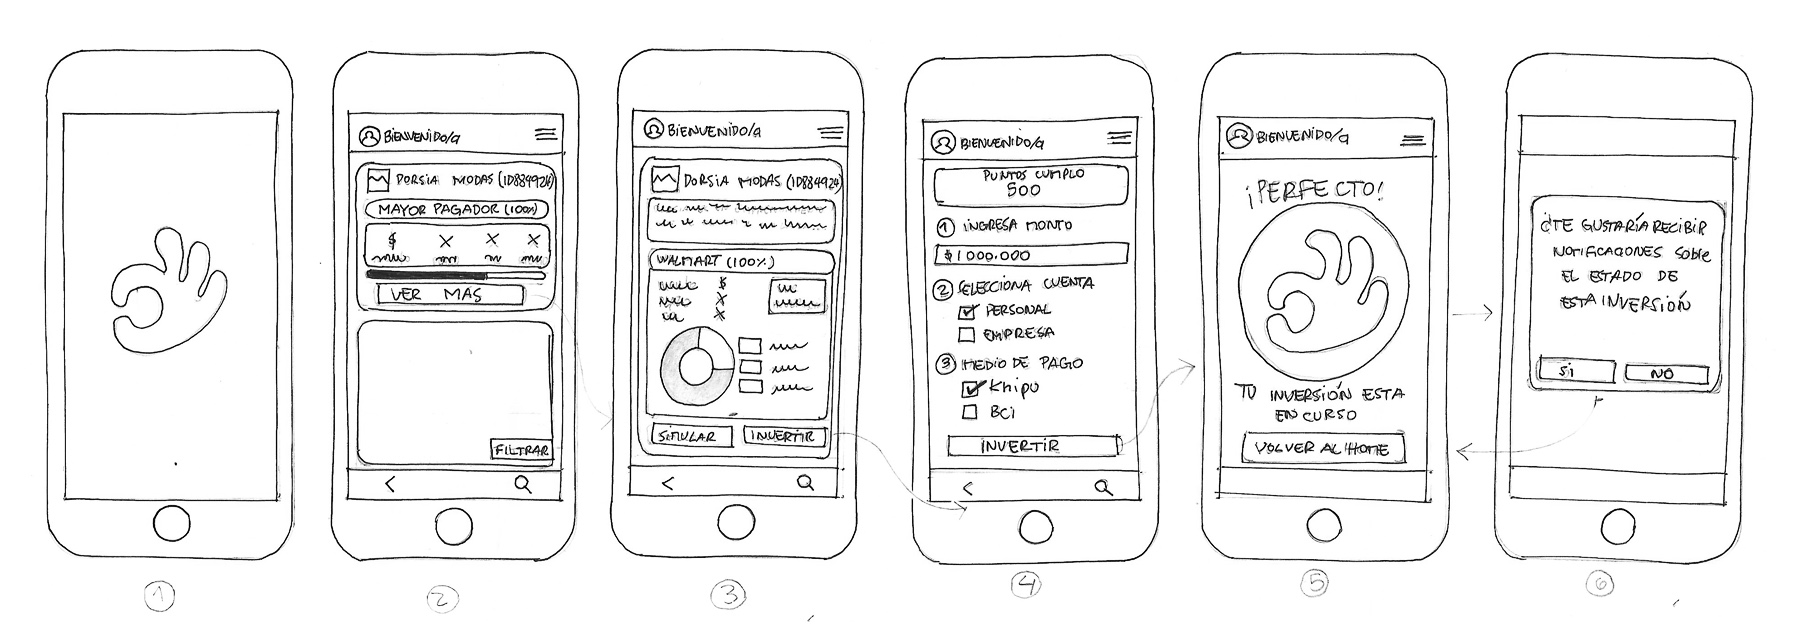 BIENVENIDO/A
DORSIA MODAS (ID884924)
MAYOR PAGADOR (100%)
$ X X X
VER MAS
FILTRAR
<
2
BIENVENIDO/A
DORSIA MODAS (ID884924)
WALMART (100%)
$
X
X
SIMULAR INVERTIR
<
3
BIENVENIDO/A
PUNTOS CUMPLO
500
1 INGRESA MONTO
$1000.000
2 SELECCIONA CUENTA
PERSONAL
EMPRESA
3 MEDIO DE PAGO
Khipu
BCI
INVERTIR
<
4
BIENVENIDO/A
¡PERFECTO!
TU INVERSIÓN ESTA
EN CURSO
VOLVER AL HOME
5
¿TE GUSTARÍA RECIBIR
NOTIFICACIONES SOBRE
EL ESTADO DE
ESTA INVERSIÓN
SI NO
6
1